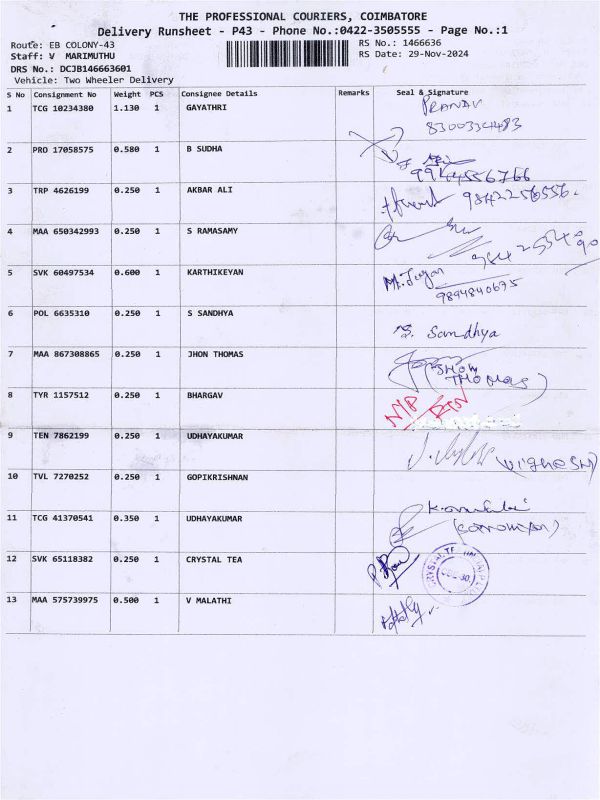 THE PROFESSIONAL COURIERS, COIMBATORE
Delivery Runsheet - P43 - Phone No.:0422-3505555 - Page No.:1
Route: EB COLONY-43
RS No.: 1466636
Staff: V MARIMUTHU
RS Date: 29-Nov-2024
DRS No.: DCJB146663601
Vehicle: Two Wheeler Delivery
S No Consignment No Weight PCS Consignee Details Remarks Seal & Signature
1 TCG 10234380 1.130 1 GAYATHRI PRANAV
2 PRO 17058575 0.580 1 B SUDHA
3 TRP 4626199 0.250 1 AKBAR ALI
4 MAA 650342993 0.250 1 S RAMASAMY
5 SVK 60497534 0.600 1 KARTHIKEYAN
9894840675
6 POL 6635310 0.250 1 S SANDHYA S. Sandhya
7 MAA 867308865 0.250 1 JHON THOMAS
THOMAS)
8 TYR 1157512 0.250 1 BHARGAV N/P RTN
9 TEN 7862199 0.250 1 UDHAYAKUMAR
10 TVL 7270252 0.250 1 GOPIKRISHNAN
11 TCG 41370541 0.350 1 UDHAYAKUMAR
12 SVK 65118382 0.250 1 CRYSTAL TEA
13 MAA 575739975 0.500 1 V MALATHI